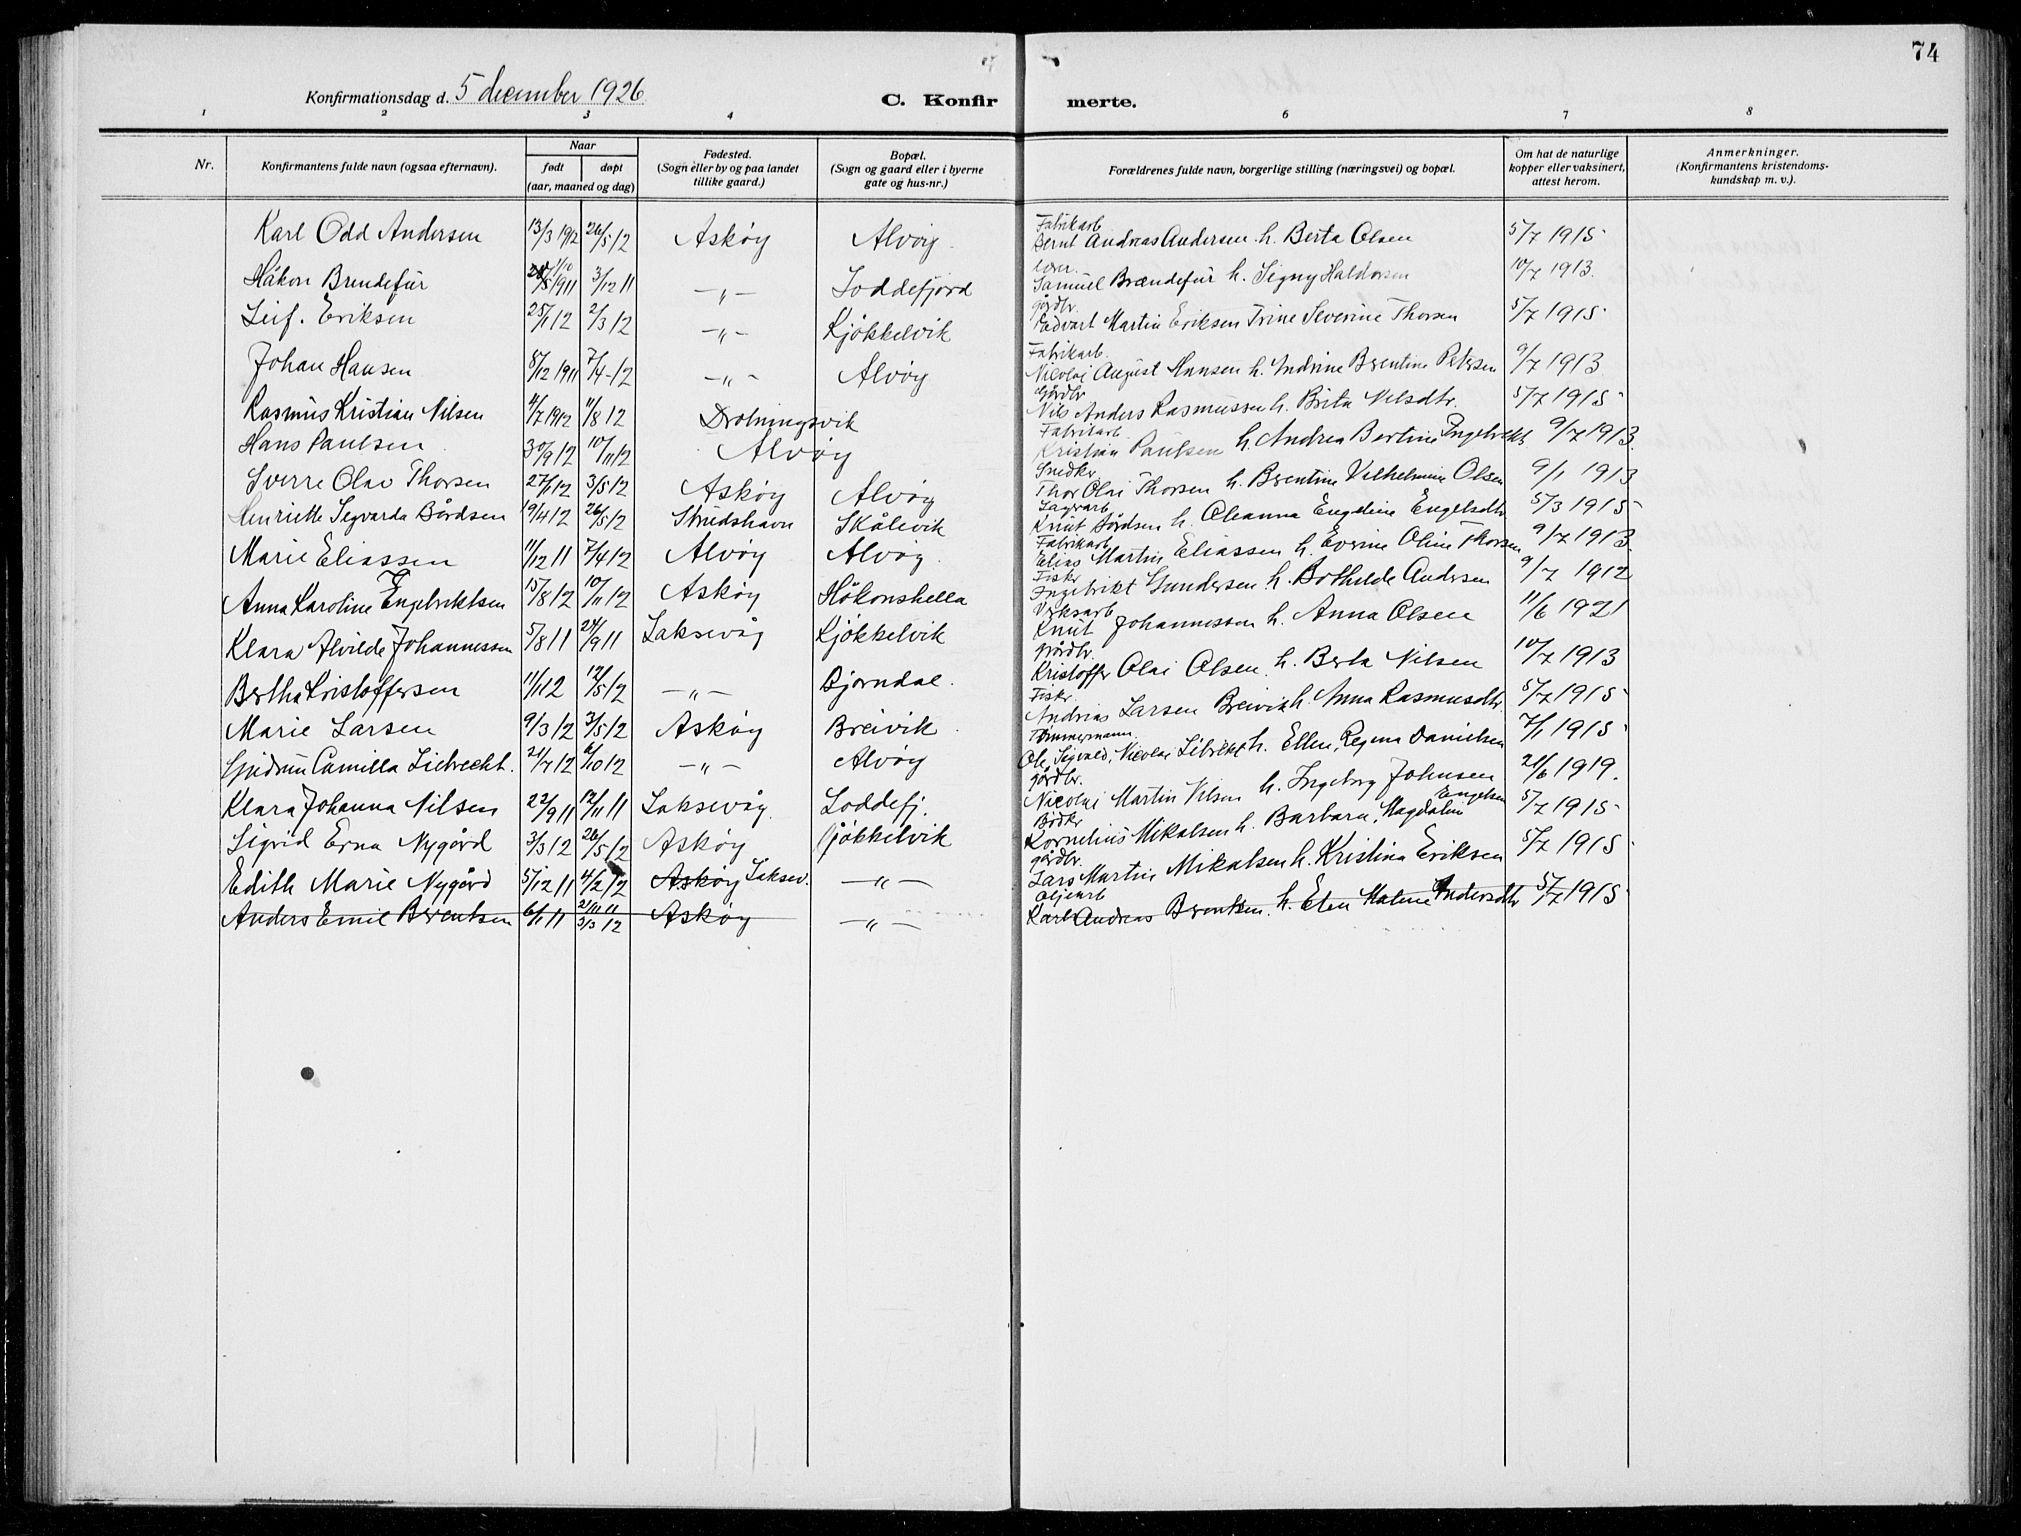 74
Konfirmationsdag d. 5 december 1926
C. Konfir merte.
1 2 3 4 6 7 8
Nr. Konfirmantens fulde navn (ogsaa efternavn). Naar født døpt (aar, maaned og dag) Fødested. (Sogn eller by og paa landet tillike gaard.) Bopæl. (Sogn og gaard eller i byerne gate og hus-nr.) Forældrenes fulde navn, borgerlige stilling (næringsvei) og bopæl. Om hat de naturlige kopper eller vaksinert, attest herom. Anmerkninger. (Konfirmantens kristendomskundskap m. v.).
Karl Odd Andersen 13/3 1912 26/5 12 Askøy Alvøy Fabrikarb. Bernt Andreas Andersen h. Berta Olsen 5/7 1915
Håkon Brendefur 1911 3/12 11 —„— Loddefjord Samuel Brændefur h. Signy Haldorsen 10/7 1913.
Leif. Eriksen 25/1 12 2/3 12 —„— Kjøkkelvik gårdbr. Edvart Martin Eriksen Trine Severine Thorsen 5/7 1915
Johan Hansen 8/12 1911 7/4-12 —„— Alvøy Fabrikarb. Nicolai August Hansen h. Andrine Berentine Petersen 9/7 1913
Rasmus Kristian Nilsen 4/7 1912 11/8 12 Drotningsvik Gårdbr Nils Anders Rasmussen h. Brita Nilsdtr. 5/7 1915
Hans Paulsen 30/9 12 10/11 12 Alvøy Fabrikarb. Kristian Paulsen h. Andrea Bertine Ingebrekts 9/7 1913.
Sverre Olav Thorsen 27/1 12 3/5 12 Askøy Alvøy Snedkr Thor Olai Thorsen h. Brentine Vilhelmine Olsen 9/1 1913
Henriette Segvarda Bårdsen 19/4 12 26/5 12 Strudshavn Skålevik Sagarb Knut Bårdsen h. Oleanna Engeline Engelsdtr 5/3 1915
Marie Eliassen 11/12 11 7/4 12 Alvøy Alvøy. Fabrikarb. Elias Martin Eliassen h. Everine Oline Thorsen 9/7 1913.
Anna Karoline Engebrektsen 15/8 12 10/11 12 Askøy Håkonshella Fiskr Ingebrikt Gundersen h. Bothilde Andersen 9/7 1912
Klara Alvilde Johannessen 5/8 11 24/9 11 Laksevåg Kjøkkelvik Verksarb Knut Johannessen h. Anna Olsen 11/6 1921
Bertha Kristoffersen 11/1 12 12/5 12 —„— Bjørndal. gårdbr. Kristoffer Olai Olsen. h. Berta Nilsen 10/7 1913
Marie Larsen 9/3 12 3/5 12 Askøy Breivik Fiskr. Andrias Larsen Breivik h. Anna Rasmusdtr. 5/7 1915
Gudrun Camilla Liebrecht. 21/7 12 6/10 12 —„— Alvøy Tømmermann. Ole, Segvald, Nicolai Librekt h. Ellen, Regina Danielsen 7/1 1915
Klara Johanna Nilsen 22/9 11 12/11 11 Laksevåg. Loddefj. gårdbr. Nicolai Martin Nilsen h. Ingeborg Johnsen 21/6 1919.
Sigrid Erna Nygård 3/3 12 26/5 12 Askøy Kjøkkelvik Bødkr Kornelius Mikalsen h. Barbara, Magdalene Engelsen 5/7 1915
Edith Marie Nygård 5/12 11 4/2 12 Askøy Laksev. —„— gårdbr. Lars Martin Mikalsen h. Kristina Eriksen 5/7 1915
Anders Emil Berentsen 6/1 11 21/11 11 3/3 12 Askøy —„— Oljearb Karl Andreas Berentsen. h. Elen Malene Andersdtr 5/7 1915